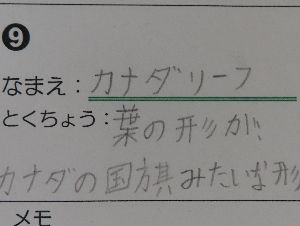 ❾
なまえ：カナダリーフ
とくちょう：葉の形が、
カナダの国旗みたいな形
メモ